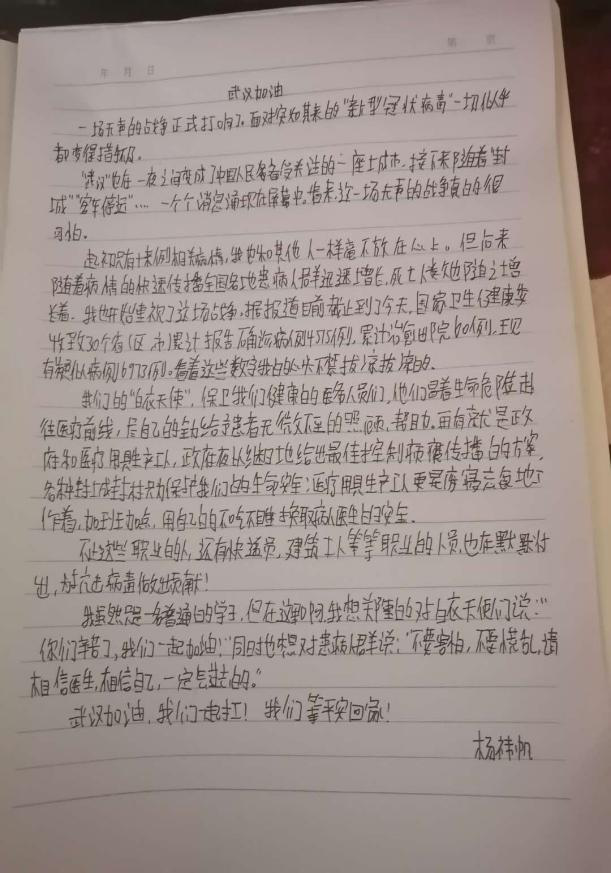 年 月 日
第 页
武汉加油
一场无声的战争正式打响了。面对突如其来的"新型冠状病毒"一切似乎
都变得措手不及。
"武汉"也在一夜之间变成了中国人民备备受关注的一座土城市,接下来随着"封
城""客车停运"....一个个消息涌现在屏幕中。看来,这一场无声的战争真的很
可怕。
起初只有十来例相关病情,我也和其他人一样毫不放在心上。但后来
随着病情的快速传播全国各地患病人群迅速增长,死亡人数也随之增
长着。我也开始重视了这场战争,据报道目前截止到了今天,国家卫生健康委
收到30个省(区、市)累计报告确诊病例4515例,累计治愈出院60例,
有疑似病例6973例。看着这些数字我的心不禁拔凉拔凉的。
我们的"白衣天使",保卫我们健康的医务人员们,他们冒着生命危险赴
往医疗前线,用自己的 给予患者无微不至的照顾,帮助。再有就是政
府和医疗用具生产工人,政府夜以继日地给出最佳控制病毒传播的方案,
各种封城封村只为保护我们的生命安全;医疗用具生产工人更是废寝忘食地工
作着,加班加点,用自己的不吃不睡换取病人医生的安全。
不止这些职业的人,还有快递员,建筑工人等等职业的人员,也在默默付
出,为抗击病毒做出贡献!
我虽然只是一名普通的学子,但在这期间,我想关隆重的对白衣天使们说:"
你们辛苦了,我们一起加油!"同时也想对患病人群说:"不要害怕,不要慌乱,请
相信医生,相信自己,一定会过去的。"
武汉加油,我们一起扛!我们等平安回家!
杨祎帆